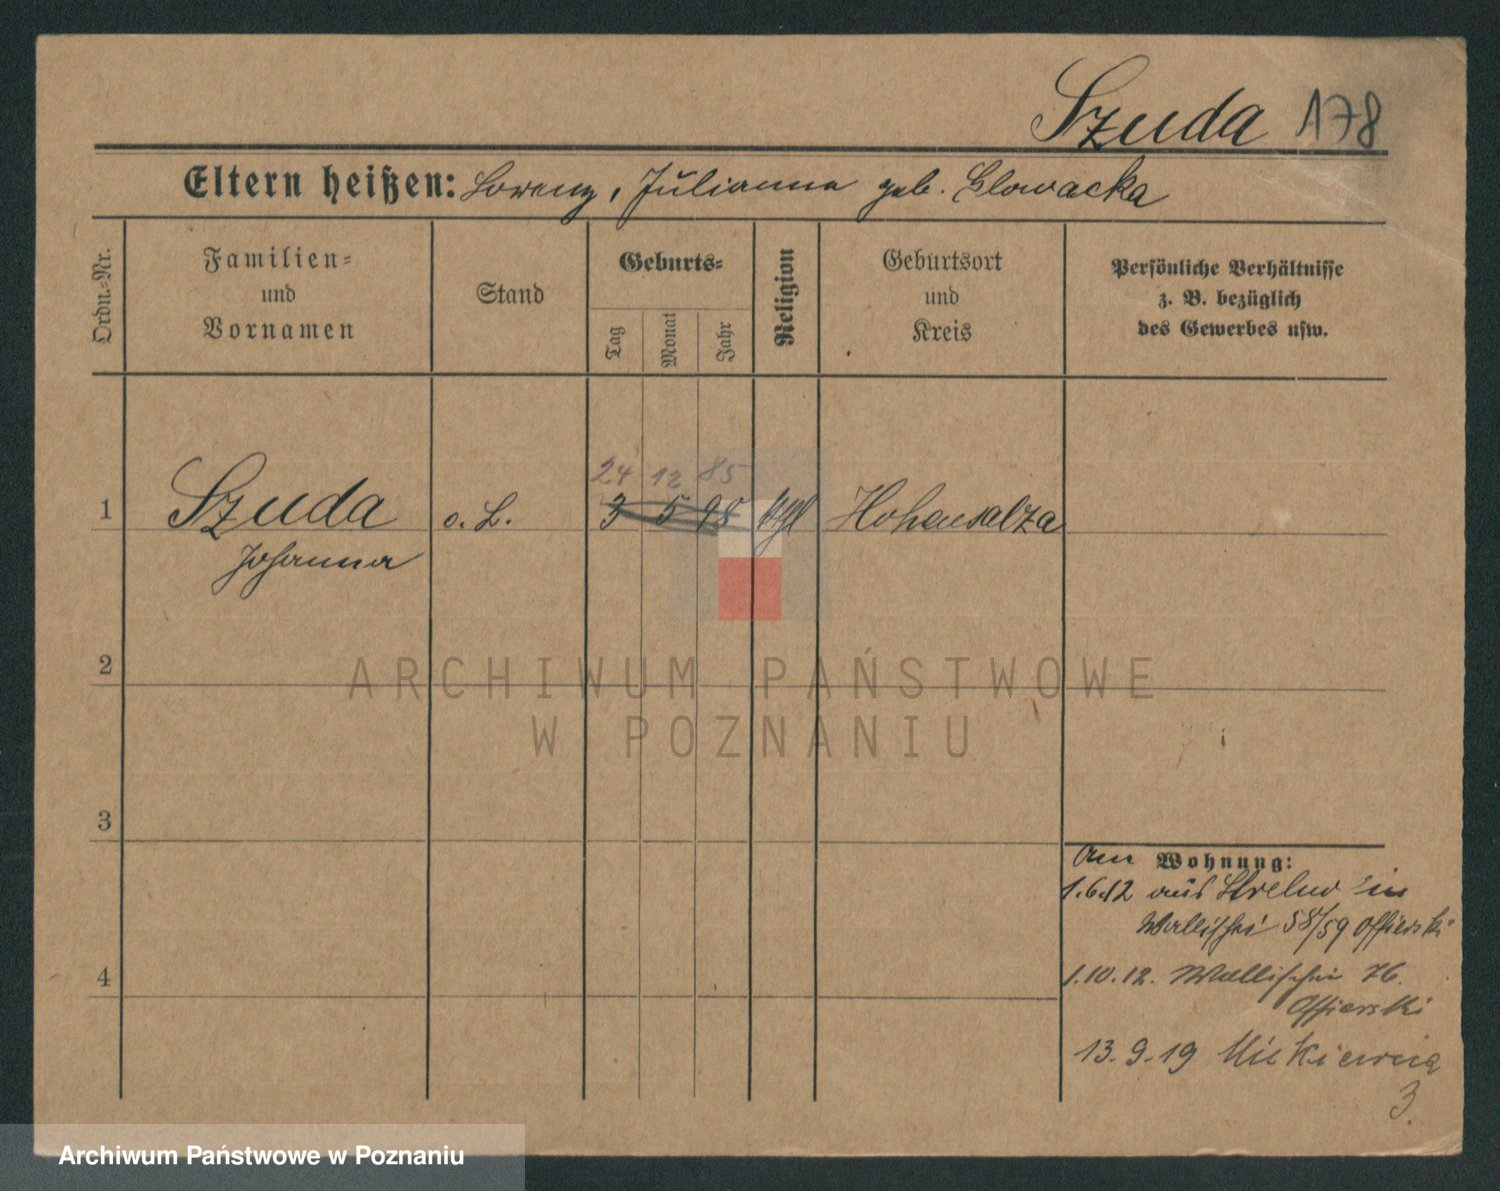 Szuda 178
Eltern heißen: Lorenz, Julianna geb. Glowacka
Ordn.-Nr.
Familien-
und
Vornamen
Stand
Geburts-
Tag
Monat
Jahr
Religion
Geburtsort
und
Kreis
Persönliche Verhältnisse
z. B. bezüglich
des Gewerbes usw.
24 12 85
1 Szuda o. L. 3 5 98 Hohensalza
Johanna
2
ARCHIWUM PAŃSTWOWE
W POZNANIU
3
am Wohnung:
1.6.12 aus Strelno in
Wallischei 58/59 Offierski
4
1.10.12. Wallischei 76.
Offierski
13.9.19
3.
Archiwum Państwowe w Poznaniu